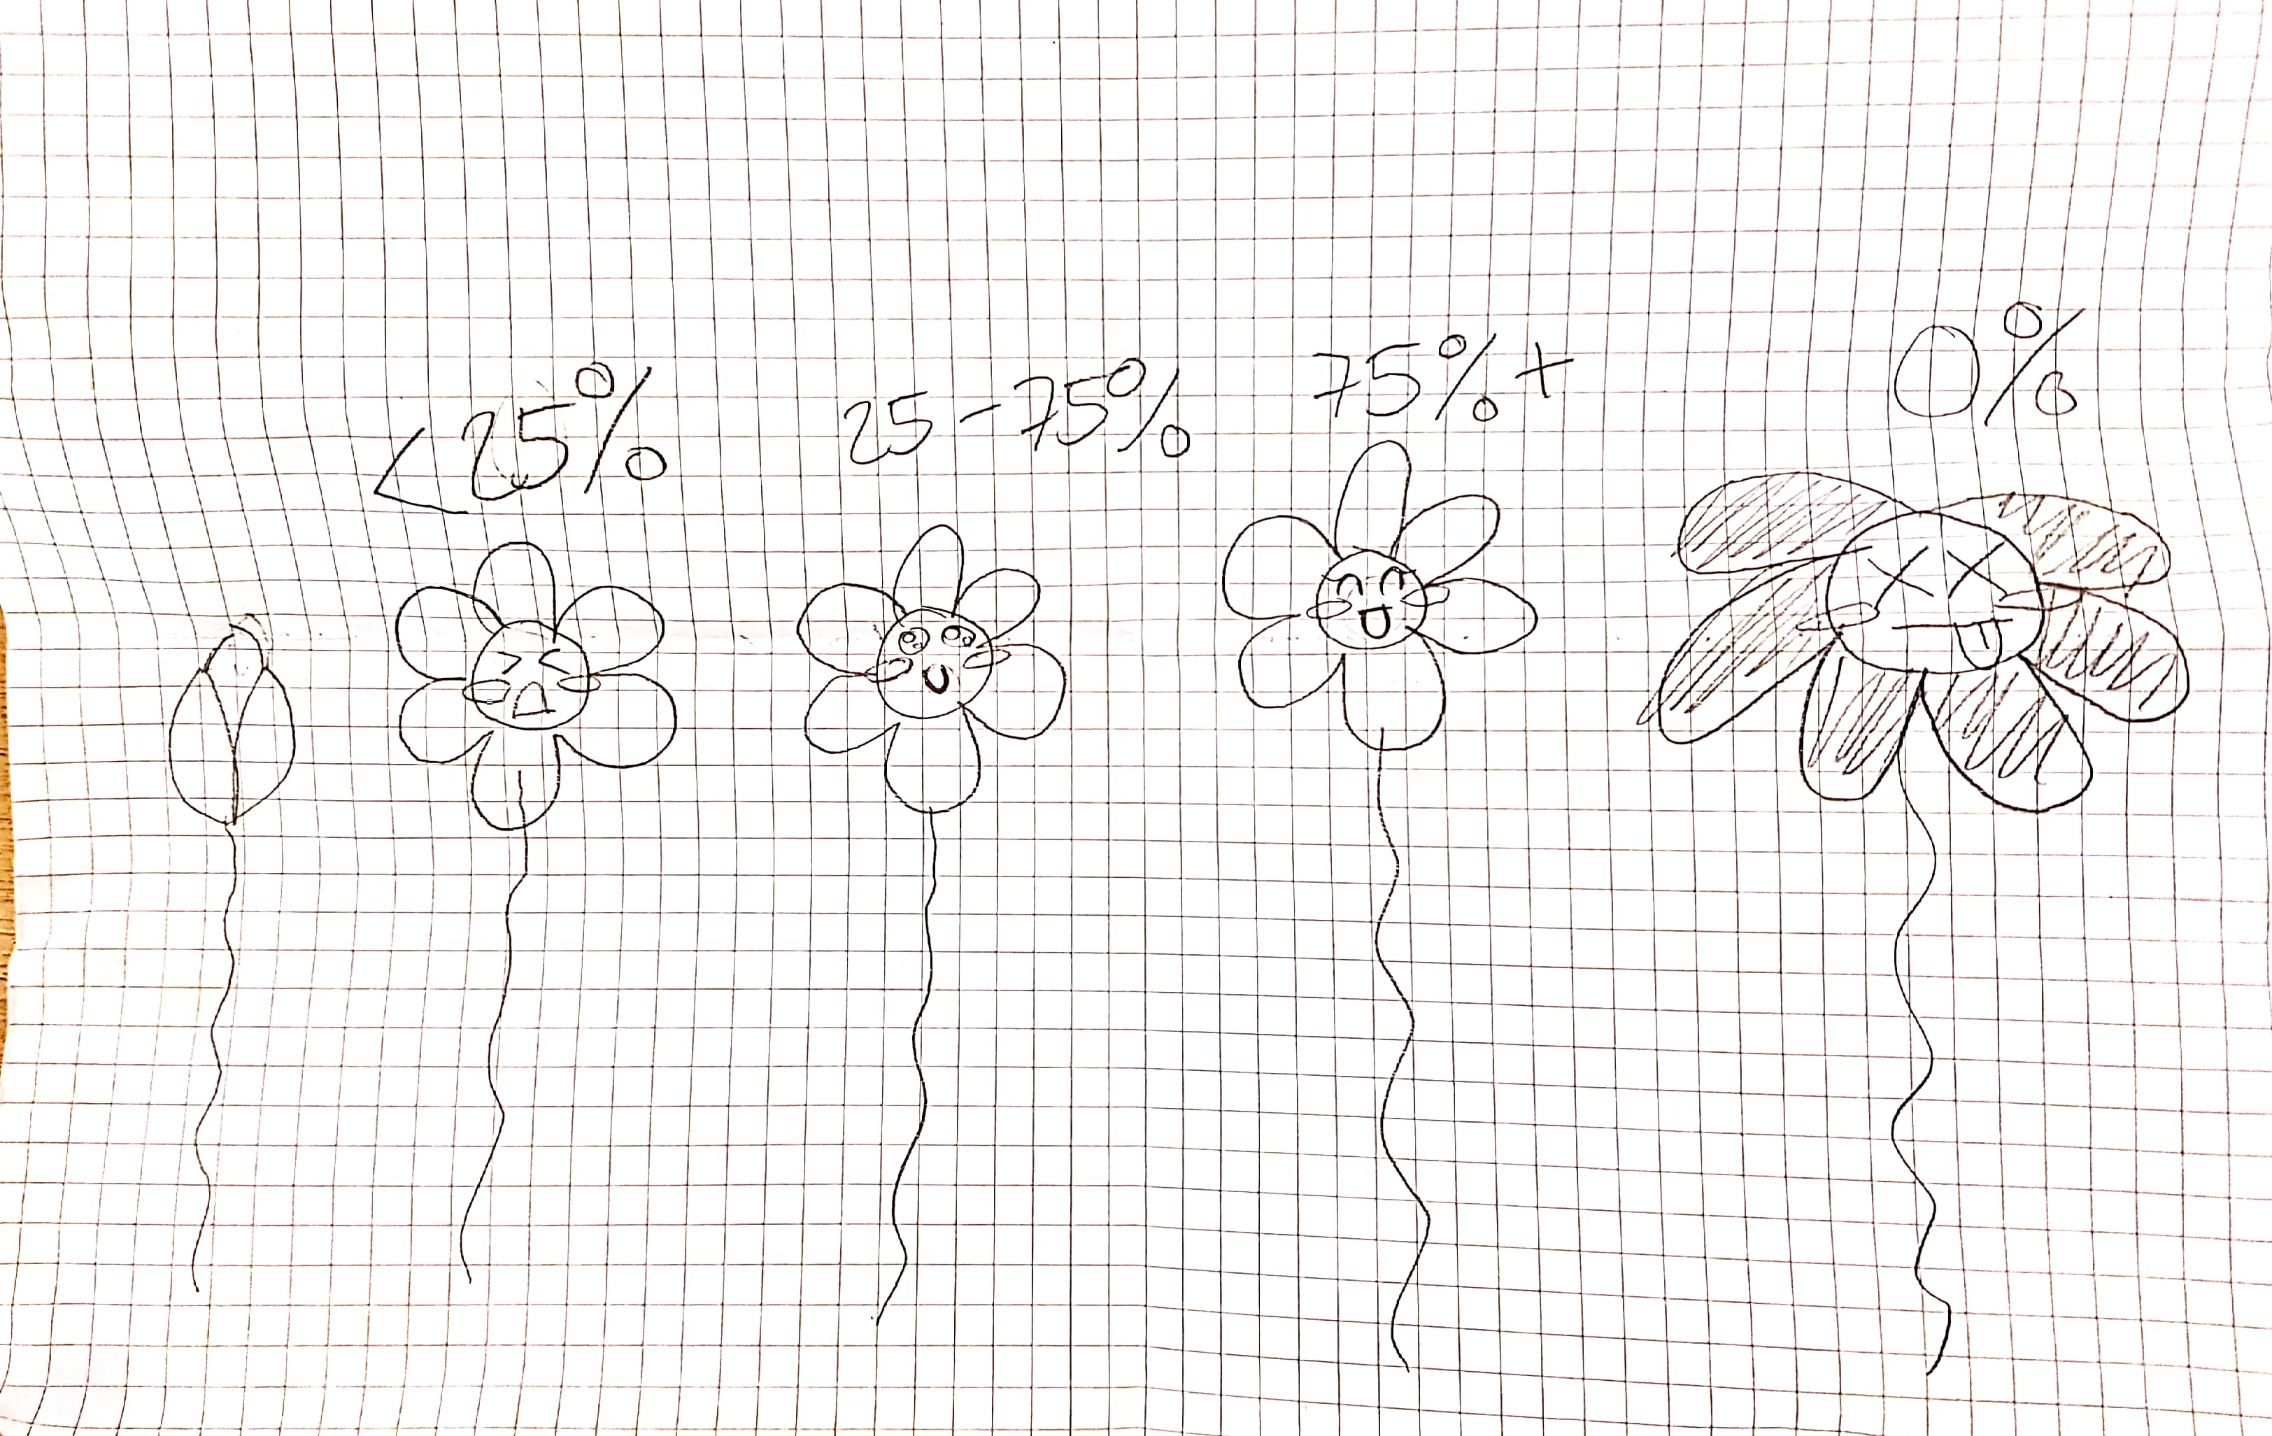 <25%
25-75%
75%+
0%